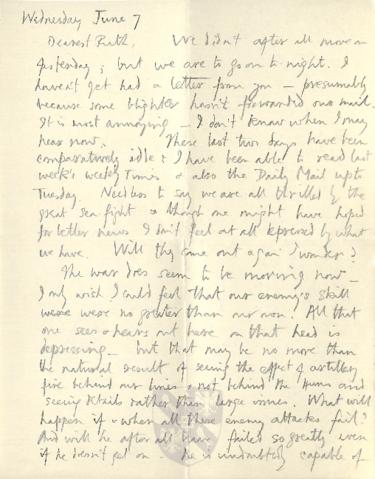 Wednesday June 7
Dearest Ruth, We didn't after all move on
yesterday; but we are to go on to night. I
haven't yet had a letter from you – presumably
because some blighter hasn't forwarded our mail.
It is most annoying – I don't know when I may
hear now. These last two days have been
comparatively idle: I have been able to read last
week's weekly Times & also the Daily Mail up to
Tuesday. Needless to say we are all thrilled by the
great sea fight & though one might have hoped
for better news I don't feel at all depressed by what
we have. Will they come out again I wonder?
The war does seem to be moving now –
I only wish I could feel that our enemy's skill
were no greater than our own! All that
one sees & hears out here on that head is
depressing – but that may be no more than
the natural result of seeing the effect of artillery
fire behind our lines & not behind the Huns and
seeing details rather than large issues. What will
happen if & when all these enemy attacks fail?
And will he after all have failed so greatly even
if he doesn't get on – he is undoubtedly capable of